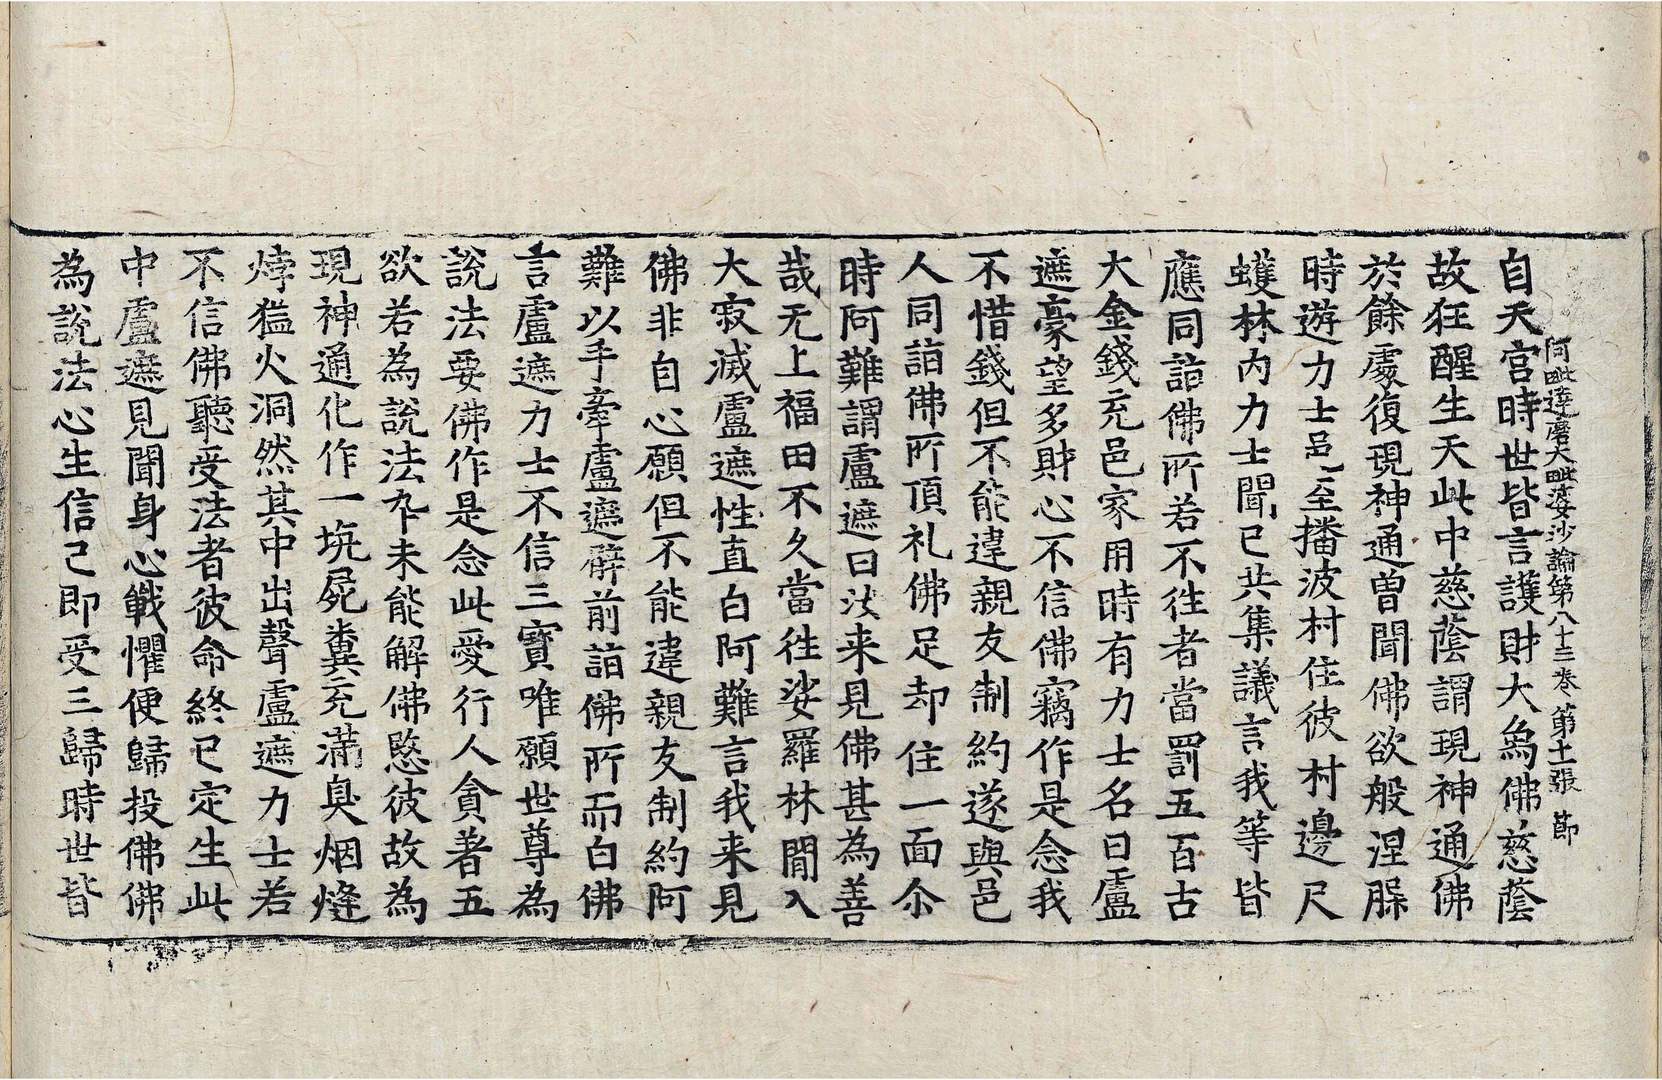 阿毗達磨大毗婆沙論第八十三卷 第十一張 節
自天宮時世皆言護財大爲佛慈蔭
故狂醒生天此中慈蔭謂現神通佛
於餘處復現神通曽聞佛欲般涅脲
時遊力士邑〻至播波村住彼村邊尺
蠖林內力士聞已共集議言我等皆
應同詣佛所若不徃者當罰五百古
大金錢充邑家用時有力士名曰盧
遮豪望多財心不信佛竊作是念我
不惜錢但不能違親友制約遂與邑
人同詣佛所頂礼佛足却住一面尒
時阿難謂盧遮曰汝来見佛甚為善
哉无上福田不久當徃娑羅林間入
大寂滅盧遮性直白阿難言我来見
佛非自心願但不能違親友制約阿
難以手牽盧遮臂前詣佛所而白佛
言盧遮力士不信三寶唯願世尊為
說法要佛作是念此愛行人貪著五
欲若為說法卒未能解佛愍彼故為
現神通化作一坑屍糞充滿臭烟熢
㶿猛火洞然其中出聲盧遮力士若
不信佛聽受法者彼命終已定生此
中盧遮見聞身心戰懼便歸投佛佛
為說法心生信已即受三歸時世皆